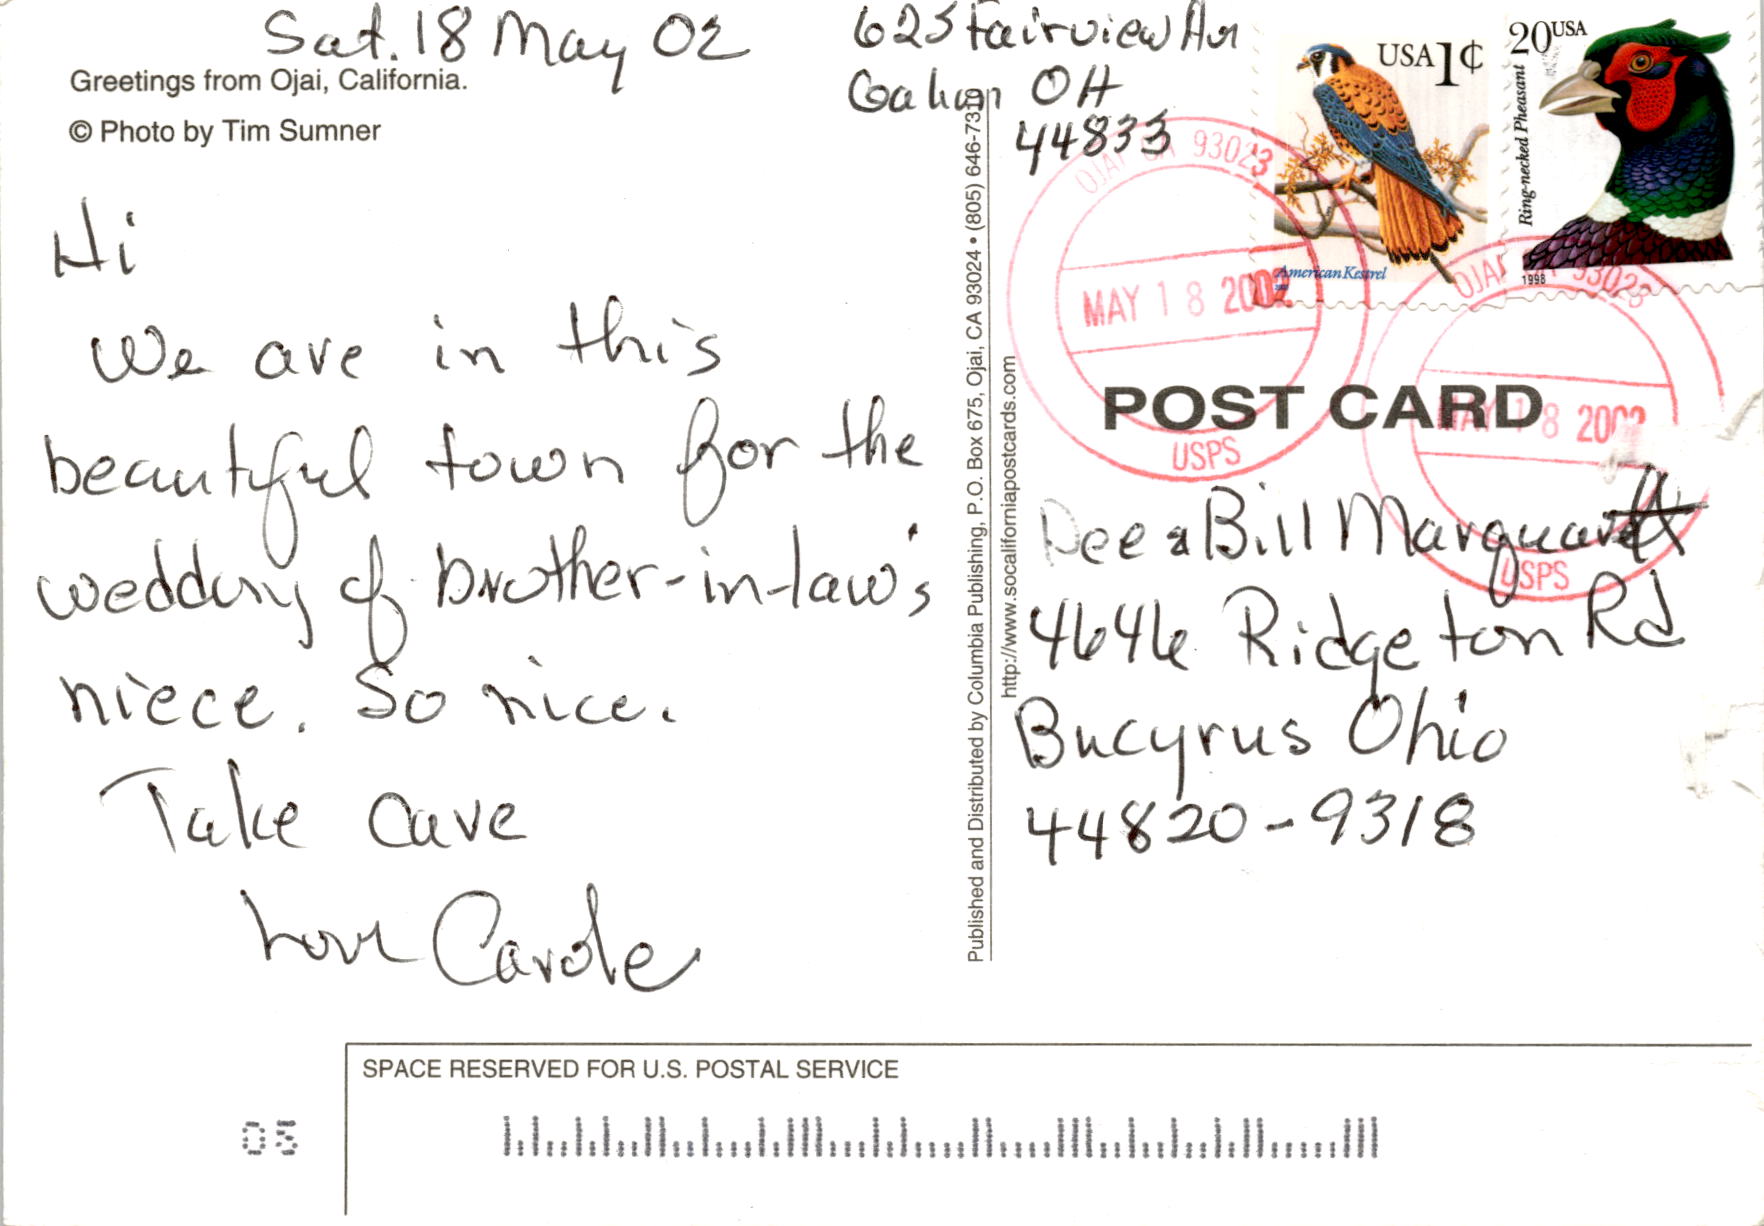 Sat. 18 May 02
Greetings from Ojai, California.
© Photo by Tim Sumner
Hi
We are in this
beautiful town for the
wedding of brother-in-law's
niece. So nice.
Take care
Love Carole
Published and Distributed by Columbia Publishing, P.O. Box 675, Ojai, CA 93024 • (805) 646-7319
http://www.socaliforniapostcards.com
623 Fairview Av
Galion OH
44833
USA 1¢
American Kestrel
20 USA
Ring-necked Pheasant
1998
OJAI CA 93023
MAY 18 2002
USPS
OJAI CA 93023
MAY 18 2002
USPS
POST CARD
Dee & Bill Marquardt
4646 Ridgeton Rd
Bucyrus Ohio
44820-9318
SPACE RESERVED FOR U.S. POSTAL SERVICE